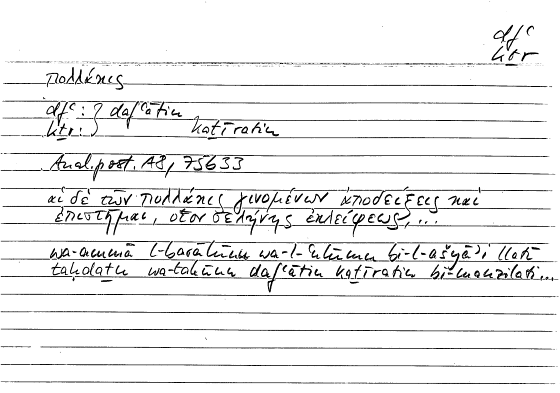 dfʿ
kṯr
πολλάκις
dfʿ : } dafʿātin
kṯr : } kaṯīratin
Anal.post. A8, 75b33
αἱ δὲ τῶν πολλάκις γινομένων ἀποδείξεις καὶ
ἐπιστῆμαι, οἷον σελήνης ἐκλείψεως, ...
wa-ammā l-barāhīnu wa-l-ʿulūmu bi-l-ašyāʾi llatī
taḥdaṯu wa-takūnu dafʿātin kaṯīratin bi-manzilati...